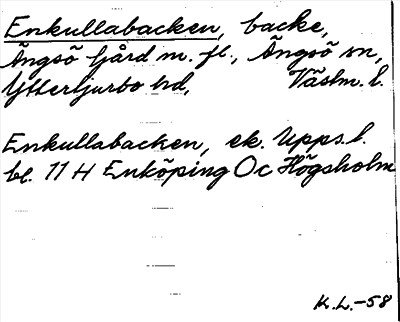 Enkullabacken, backe,
Ängsö gård m. fl., Ängsö sn,
Yttertjurbo hd, Västm. l.
Enkullabacken, ek. Upps. l.
bl. 11 H Enköping Oc Högsholm
K.L.-58